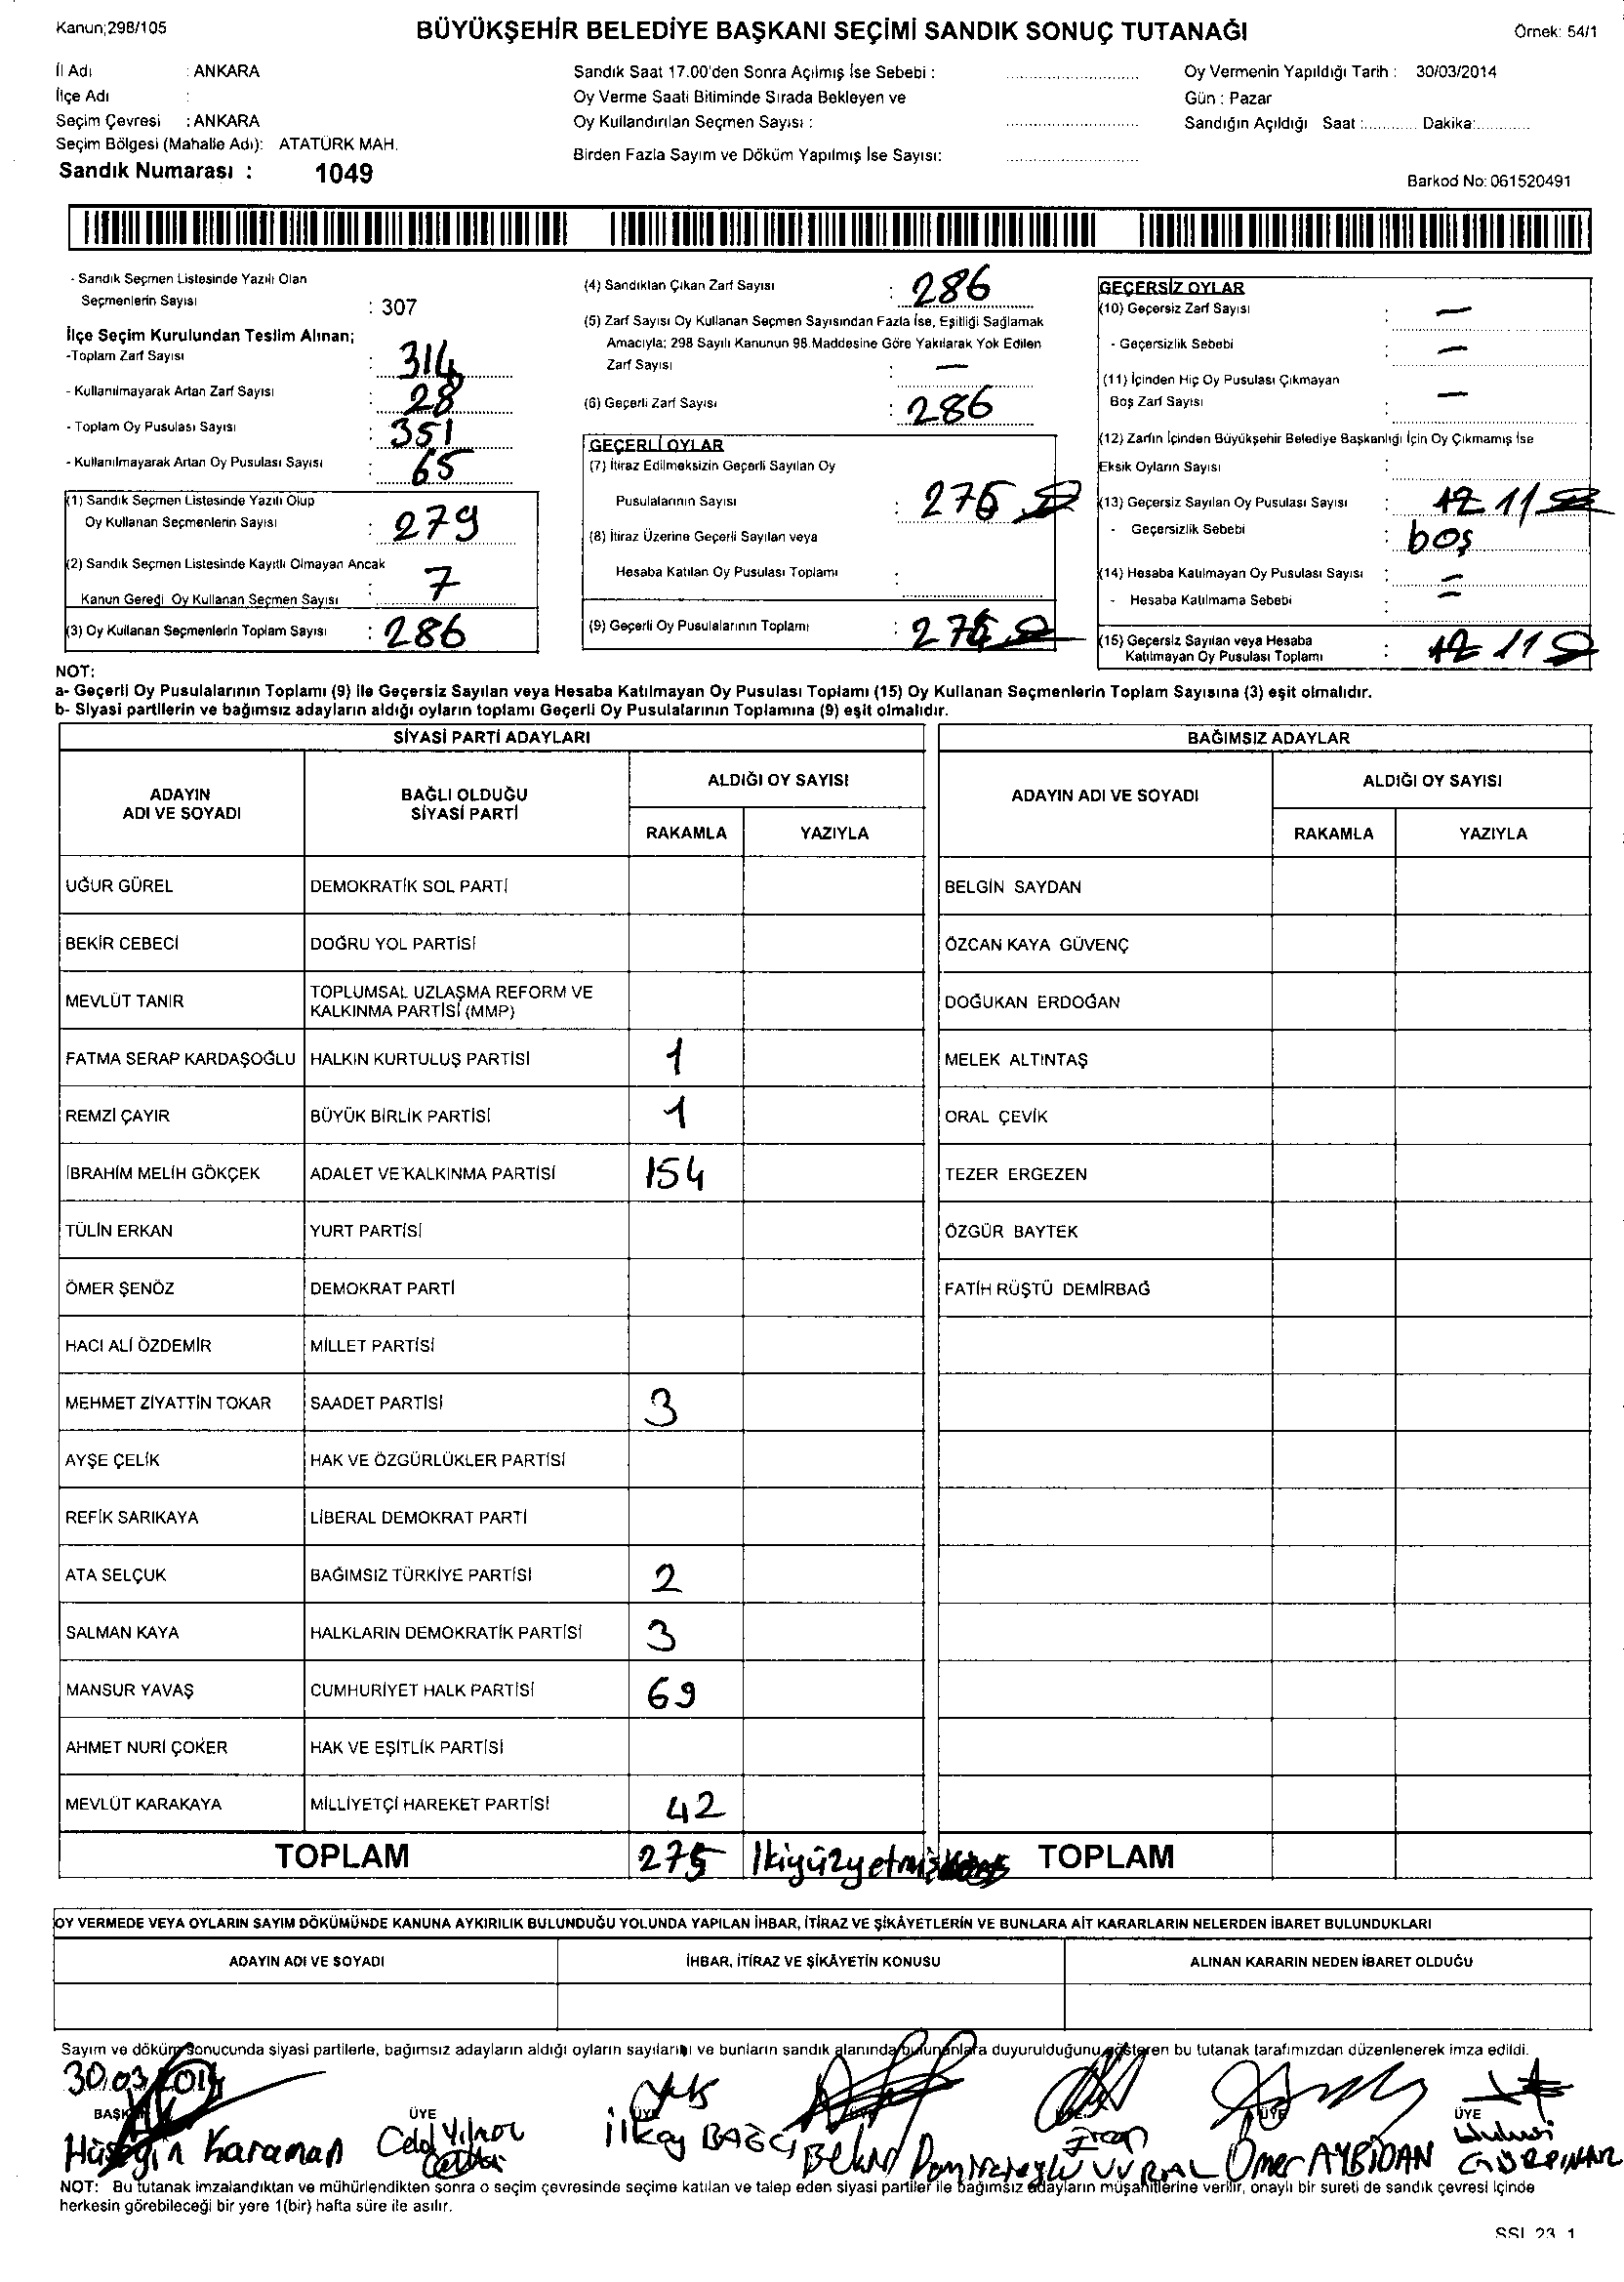 Kanun;298/105
BÜYÜKŞEHİR BELEDİYE BAŞKANI SEÇİMİ SANDIK SONUÇ TUTANAĞI
Örnek: 54/1
İl Adı : ANKARA
İlçe Adı :
Seçim Çevresi : ANKARA
Seçim Bölgesi (Mahalle Adı): ATATÜRK MAH.
Sandık Numarası : 1049
Sandık Saat 17.00'den Sonra Açılmış İse Sebebi :
Oy Verme Saati Bitiminde Sırada Bekleyen ve
Oy Kullandırılan Seçmen Sayısı :
Birden Fazla Sayım ve Döküm Yapılmış İse Sayısı:
Oy Vermenin Yapıldığı Tarih : 30/03/2014
Gün : Pazar
Sandığın Açıldığı Saat :............ Dakika:............
Barkod No: 061520491
- Sandık Seçmen Listesinde Yazılı Olan
Seçmenlerin Sayısı : 307
İlçe Seçim Kurulundan Teslim Alınan;
-Toplam Zarf Sayısı : 314
- Kullanılmayarak Artan Zarf Sayısı : 28
- Toplam Oy Pusulası Sayısı : 351
- Kullanılmayarak Artan Oy Pusulası Sayısı : 65
(1) Sandık Seçmen Listesinde Yazılı Olup
Oy Kullanan Seçmenlerin Sayısı : 279
(2) Sandık Seçmen Listesinde Kayıtlı Olmayan Ancak
Kanun Gereği Oy Kullanan Seçmen Sayısı : 7
(3) Oy Kullanan Seçmenlerin Toplam Sayısı : 286
(4) Sandıktan Çıkan Zarf Sayısı : 286
(5) Zarf Sayısı Oy Kullanan Seçmen Sayısından Fazla İse, Eşitliği Sağlamak
Amacıyla; 298 Sayılı Kanunun 98.Maddesine Göre Yakılarak Yok Edilen
Zarf Sayısı : —
(6) Geçerli Zarf Sayısı : 286
GEÇERLİ OYLAR
(7) İtiraz Edilmeksizin Geçerli Sayılan Oy
Pusulalarının Sayısı : 275
(8) İtiraz Üzerine Geçerli Sayılan veya
Hesaba Katılan Oy Pusulası Toplamı :
(9) Geçerli Oy Pusulalarının Toplamı : 275
GEÇERSİZ OYLAR
(10) Geçersiz Zarf Sayısı : —
- Geçersizlik Sebebi : —
(11) İçinden Hiç Oy Pusulası Çıkmayan
Boş Zarf Sayısı : —
(12) Zarfın İçinden Büyükşehir Belediye Başkanlığı İçin Oy Çıkmamış İse
Eksik Oyların Sayısı :
(13) Geçersiz Sayılan Oy Pusulası Sayısı : 12 11
- Geçersizlik Sebebi : boş
(14) Hesaba Katılmayan Oy Pusulası Sayısı : —
- Hesaba Katılmama Sebebi : —
(15) Geçersiz Sayılan veya Hesaba
Katılmayan Oy Pusulası Toplamı : 12 11
NOT:
a- Geçerli Oy Pusulalarının Toplamı (9) ile Geçersiz Sayılan veya Hesaba Katılmayan Oy Pusulası Toplamı (15) Oy Kullanan Seçmenlerin Toplam Sayısına (3) eşit olmalıdır.
b- Siyasi partilerin ve bağımsız adayların aldığı oyların toplamı Geçerli Oy Pusulalarının Toplamına (9) eşit olmalıdır.
SİYASİ PARTİ ADAYLARI
BAĞIMSIZ ADAYLAR
ADAYIN
ADI VE SOYADI
BAĞLI OLDUĞU
SİYASİ PARTİ
ALDIĞI OY SAYISI
RAKAMLA YAZIYLA
ADAYIN ADI VE SOYADI
ALDIĞI OY SAYISI
RAKAMLA YAZIYLA
UĞUR GÜREL DEMOKRATİK SOL PARTİ BELGİN SAYDAN
BEKİR CEBECİ DOĞRU YOL PARTİSİ ÖZCAN KAYA GÜVENÇ
MEVLÜT TANIR TOPLUMSAL UZLAŞMA REFORM VE
KALKINMA PARTİSİ (MMP) DOĞUKAN ERDOĞAN
FATMA SERAP KARDAŞOĞLU HALKIN KURTULUŞ PARTİSİ 1 MELEK ALTINTAŞ
REMZİ ÇAYIR BÜYÜK BİRLİK PARTİSİ 1 ORAL ÇEVİK
İBRAHİM MELİH GÖKÇEK ADALET VE KALKINMA PARTİSİ 154 TEZER ERGEZEN
TÜLİN ERKAN YURT PARTİSİ ÖZGÜR BAYTEK
ÖMER ŞENÖZ DEMOKRAT PARTİ FATİH RÜŞTÜ DEMİRBAĞ
HACI ALİ ÖZDEMİR MİLLET PARTİSİ
MEHMET ZİYATTİN TOKAR SAADET PARTİSİ 3
AYŞE ÇELİK HAK VE ÖZGÜRLÜKLER PARTİSİ
REFİK SARIKAYA LİBERAL DEMOKRAT PARTİ
ATA SELÇUK BAĞIMSIZ TÜRKİYE PARTİSİ 2
SALMAN KAYA HALKLARIN DEMOKRATİK PARTİSİ 3
MANSUR YAVAŞ CUMHURİYET HALK PARTİSİ 69
AHMET NURİ ÇOKER HAK VE EŞİTLİK PARTİSİ
MEVLÜT KARAKAYA MİLLİYETÇİ HAREKET PARTİSİ 42
TOPLAM 275 TOPLAM
OY VERMEDE VEYA OYLARIN SAYIM DÖKÜMÜNDE KANUNA AYKIRILIK BULUNDUĞU YOLUNDA YAPILAN İHBAR, İTİRAZ VE ŞİKÂYETLERİN VE BUNLARA AİT KARARLARIN NELERDEN İBARET BULUNDUKLARI
ADAYIN ADI VE SOYADI İHBAR, İTİRAZ VE ŞİKÂYETİN KONUSU ALINAN KARARIN NEDEN İBARET OLDUĞU
Sayım ve döküm sonucunda siyasi partilerle, bağımsız adayların aldığı oyların sayılarını ve bunların sandık alanında bulunanlara duyurulduğunu gösteren bu tutanak tarafımızdan düzenlenerek imza edildi.
30.03.2014
ÜYE ÜYE ÜYE
Hüseyin Karaman Celal Yılmaz İlkay BAĞCI VURAL Ömer AYBİDAN
NOT: Bu tutanak imzalandıktan ve mühürlendikten sonra o seçim çevresinde seçime katılan ve talep eden siyasi partiler ile bağımsız adayların müşahitlerine verilir, onaylı bir sureti de sandık çevresi içinde
herkesin görebileceği bir yere 1(bir) hafta süre ile asılır.